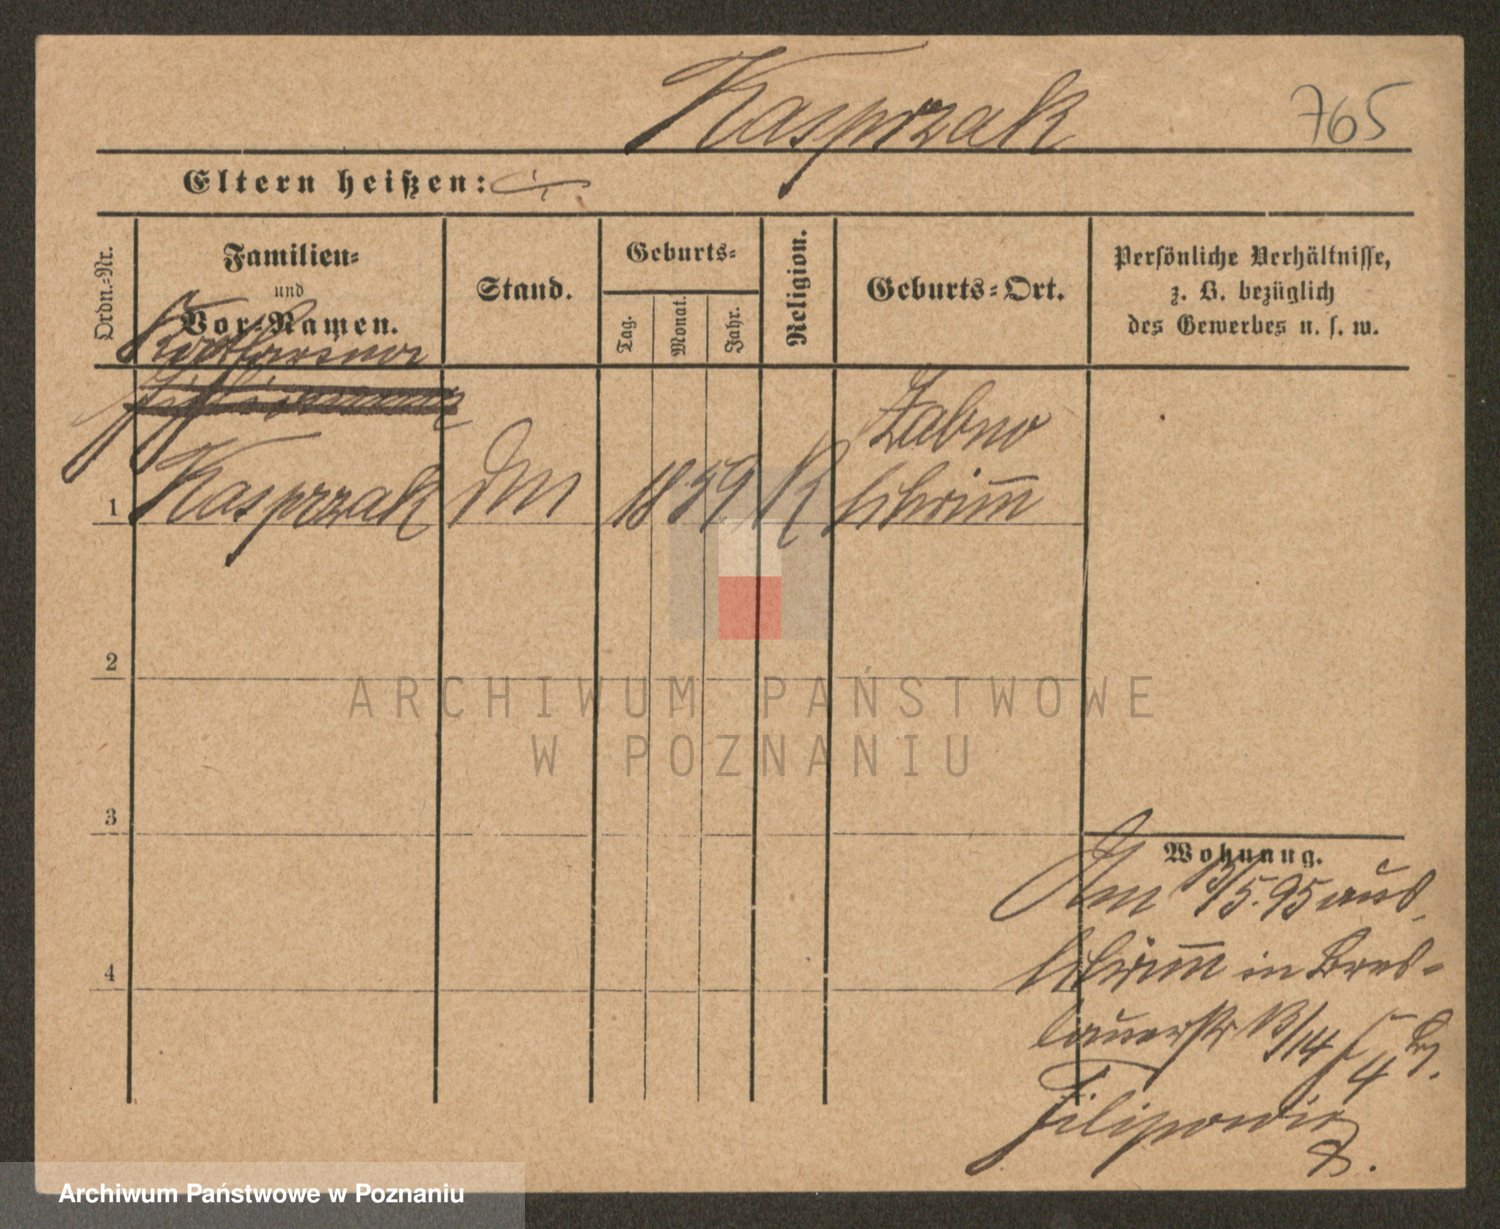 Kasprzak 765
Eltern heißen:
Ordn.-Nr.
Familien-
und
Vor-Namen.
Stand.
Geburts-
Tag.
Monat.
Jahr.
Religion.
Geburts-Ort.
Persönliche Verhältnisse,
z. B. bezüglich
des Gewerbes u. s. w.
Katharina
Zabno
1 Kasprzak 1859 K Schrimm
2
3
4
Wohnung.
Am 13/5.95 aus
Schrimm in Bres-
lauerstr 13/14
Filipowicz.
ARCHIWUM PAŃSTWOWE
W POZNANIU
Archiwum Państwowe w Poznaniu